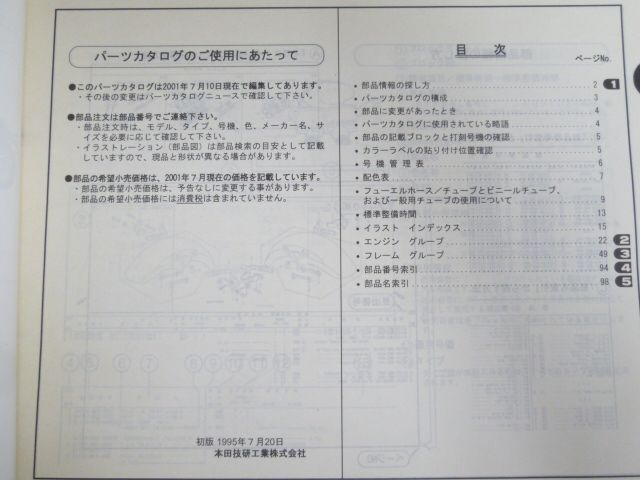 パーツカタログのご使用にあたって
●このパーツカタログは2001年7月10日現在で編集してあります。
・その後の変更はパーツカタログニュースで確認して下さい。
●部品注文は部品番号でご連絡下さい。
・部品注文時は、モデル、タイプ、号機、色、メーカー名、サイズを必要に応じて確認して下さい。
・イラストレーション（部品図）は部品検索の目安として記載していますので、現品と形状が異なる場合があります。
●部品の希望小売価格は、2001年7月現在の価格を記載しています。
・部品の希望小売価格は、予告なしに変更する事があります。
・部品の希望小売価格には消費税は含まれていません。
初版 1995年7月20日
本田技研工業株式会社
目 次
ページNo.
・部品情報の探し方 2 1
・パーツカタログの構成 3
・部品に変更があったとき 4
・パーツカタログに使用されている略語 4
・部品の記載ブロックと打刻号機の確認 5
・カラーラベルの貼り付け位置確認 5
・号機管理表 6
・配色表 7
・フューエルホース／チューブとビニールチューブ、
および一般用チューブの使用について 9
・標準整備時間 13
・イラスト インデックス 15
・エンジン グループ 22 2
・フレーム グループ 49 3
・部品番号索引 94 4
・部品名索引 98 5